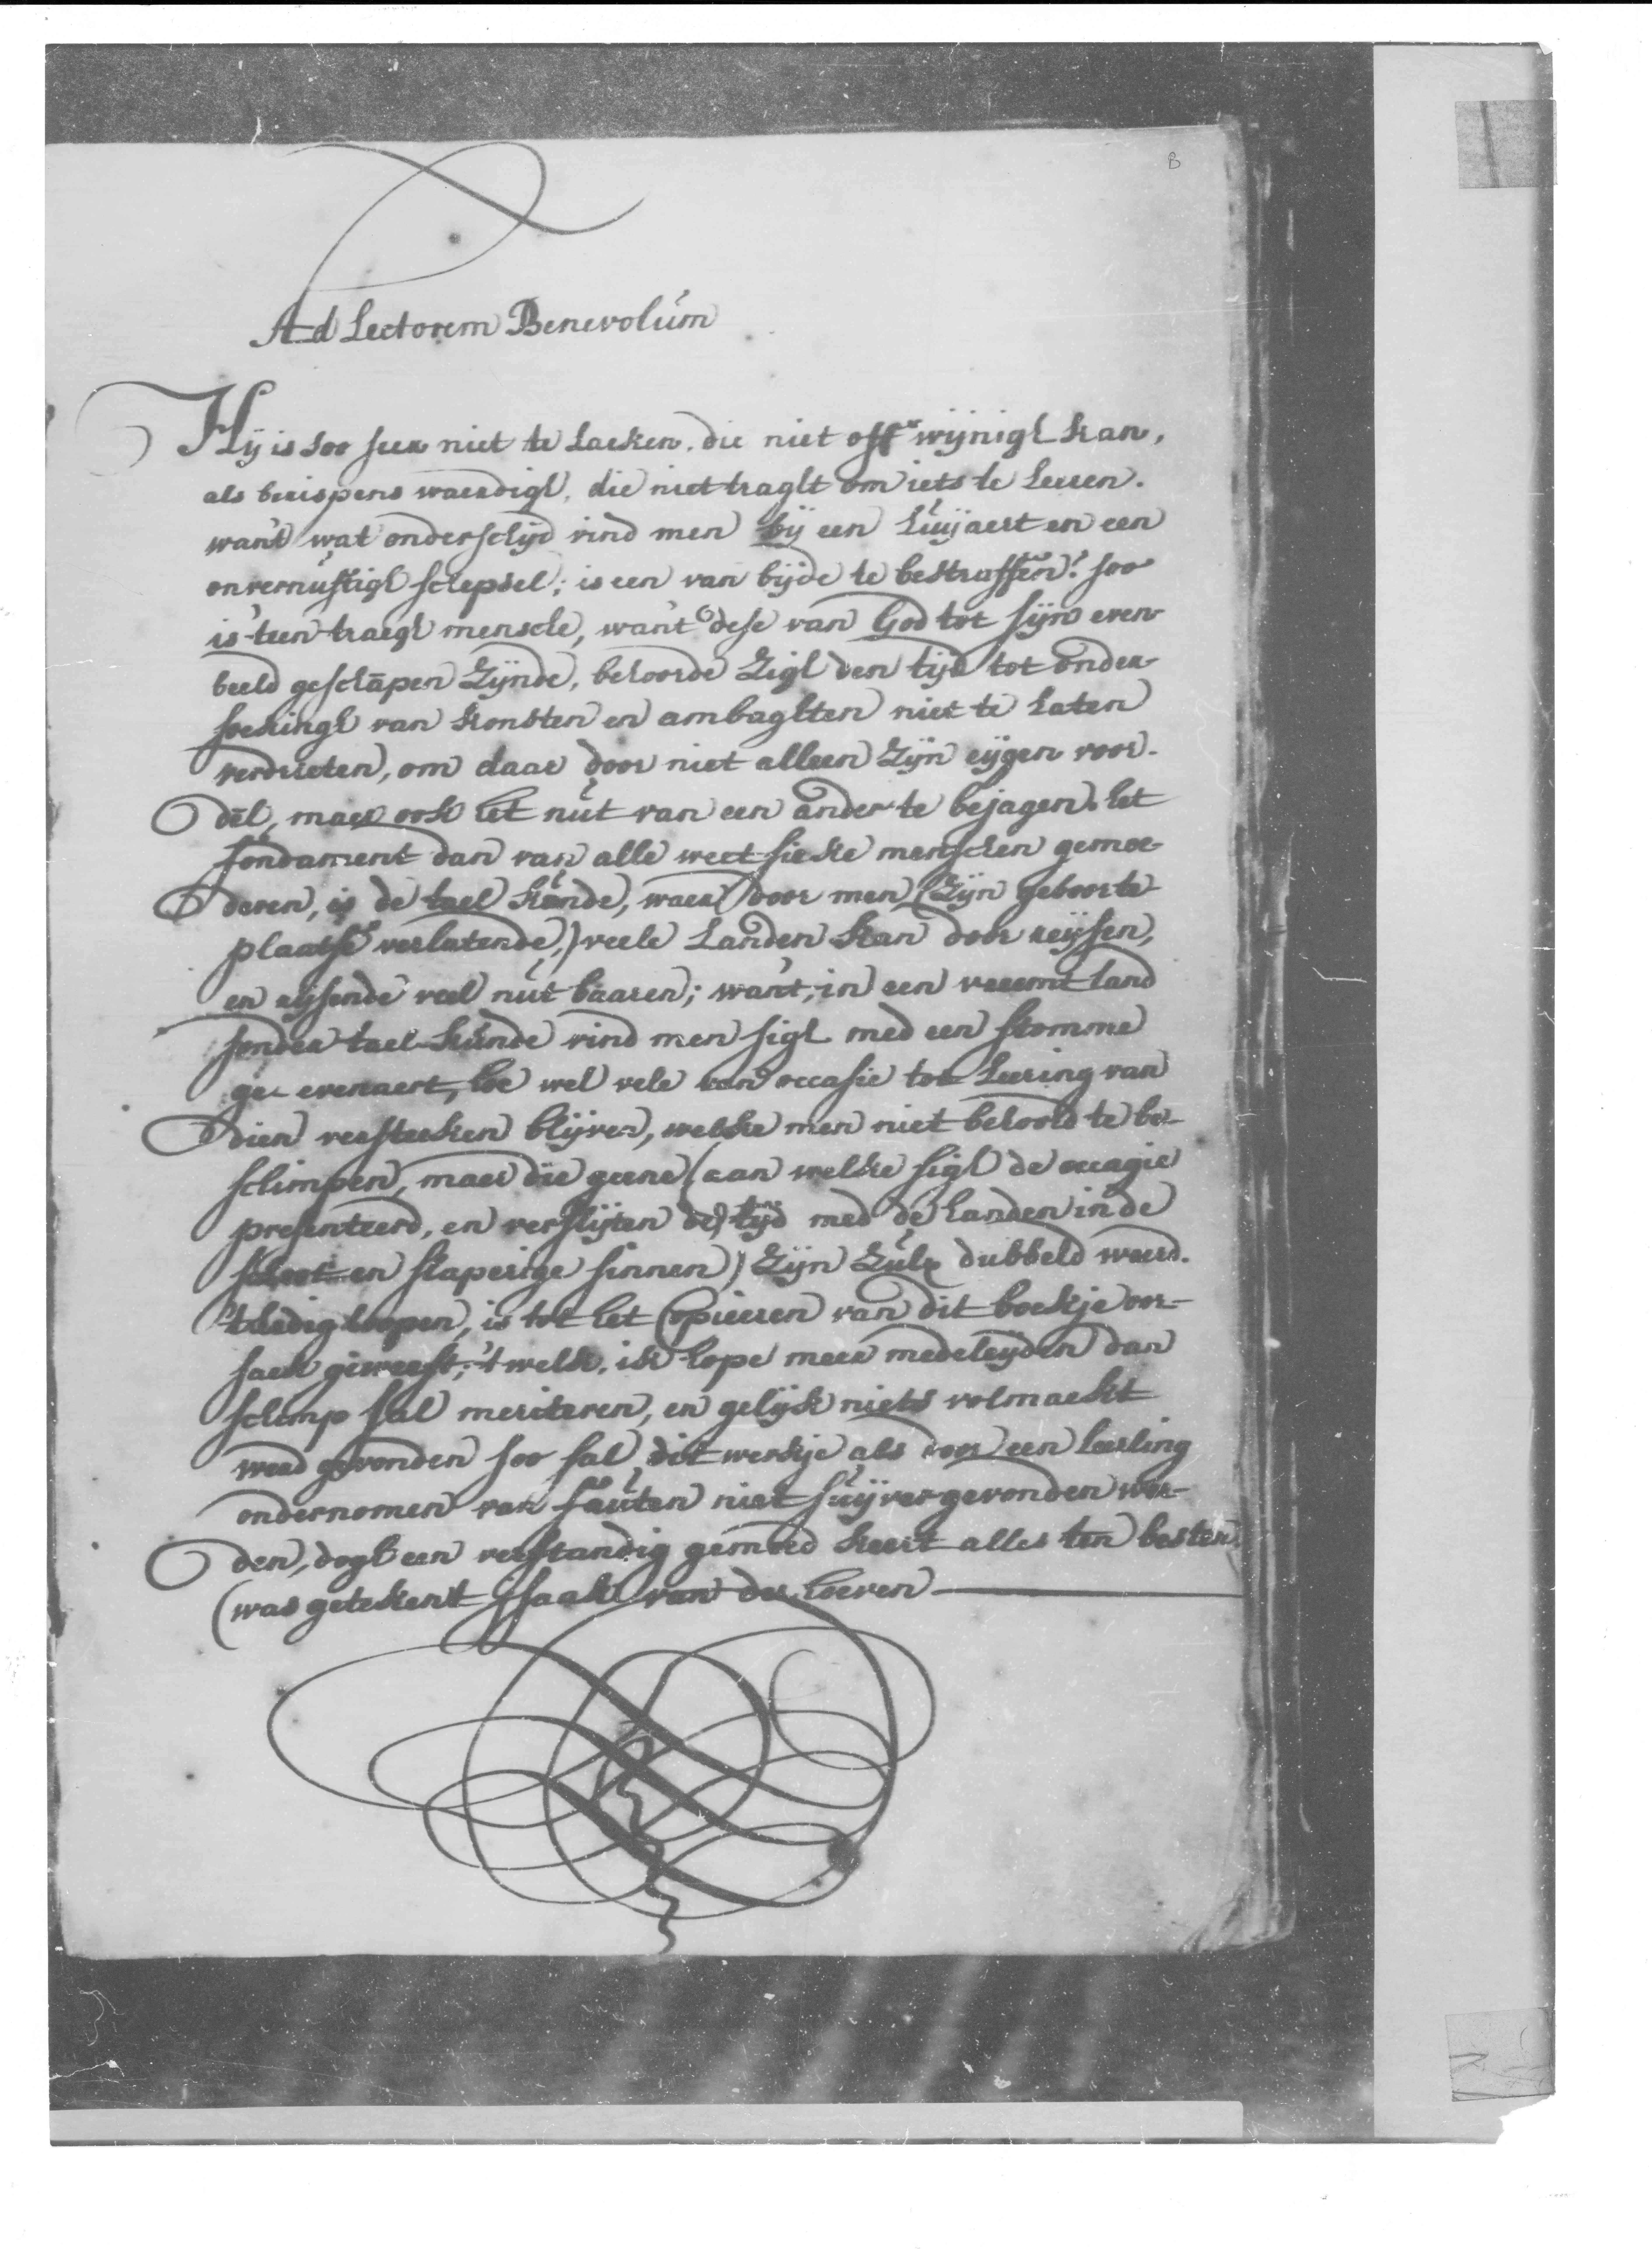 B
Ad Lectorem Benevolúm
Hij is soo seer niet te laeken. die niet off wijnigh kan,
als berispens waerdigh, die niet traght om iets te leeren.
want wat onderschijd vind men bij een lúijaert en een
onvernúftigh schepsel; is een van bijde te bestraffen? soo
is 't een traegh mensche, want dese van God tot sijn even-
beeld geschapen zijnde, behoorde zigh den tijd tot onder-
soekingh van konsten en ambaghten niet te laten
verdrieten, om daar door niet alleen zijn eijgen voor-
del, maer ook het nút van een ander te bejagen. het
fondament dan van alle weet-sieke menschen gemoe-
deren, is de tael kúnde, waer door men (zijn geboorte
plaatse verlatende,) veele landen kan door reijsen,
en rijsende veel nút baaren; want, in een vreemt land
sonder tael-kúnde vind men sigh med een stomme
ge-evenaert, hoe wel vele van occasie tot leering van
dien versteeken blijven, welke men niet behoord te be-
schimpen, maer die geene (aan welke sigh de occagie
presenteerd, en verslijten de tijd med de handen in de
schoot en slaperige sinnen) zijn zúlx dubbeld waerd.
't ledig loopen, is tot het Copieeren van dit boekje oor-
saek geweest, 't welk, ik hope meer medeleijden dan
schimp sal meriteren, en gelijk niets volmaekt
werd gevonden soo sal dit werkje als door een leerling
ondernomen van faúten niet súijver gevonden wor-
den, dogh een verstandig gemoed keert alles ten besten.
(was getekent Isaak van der hoeven